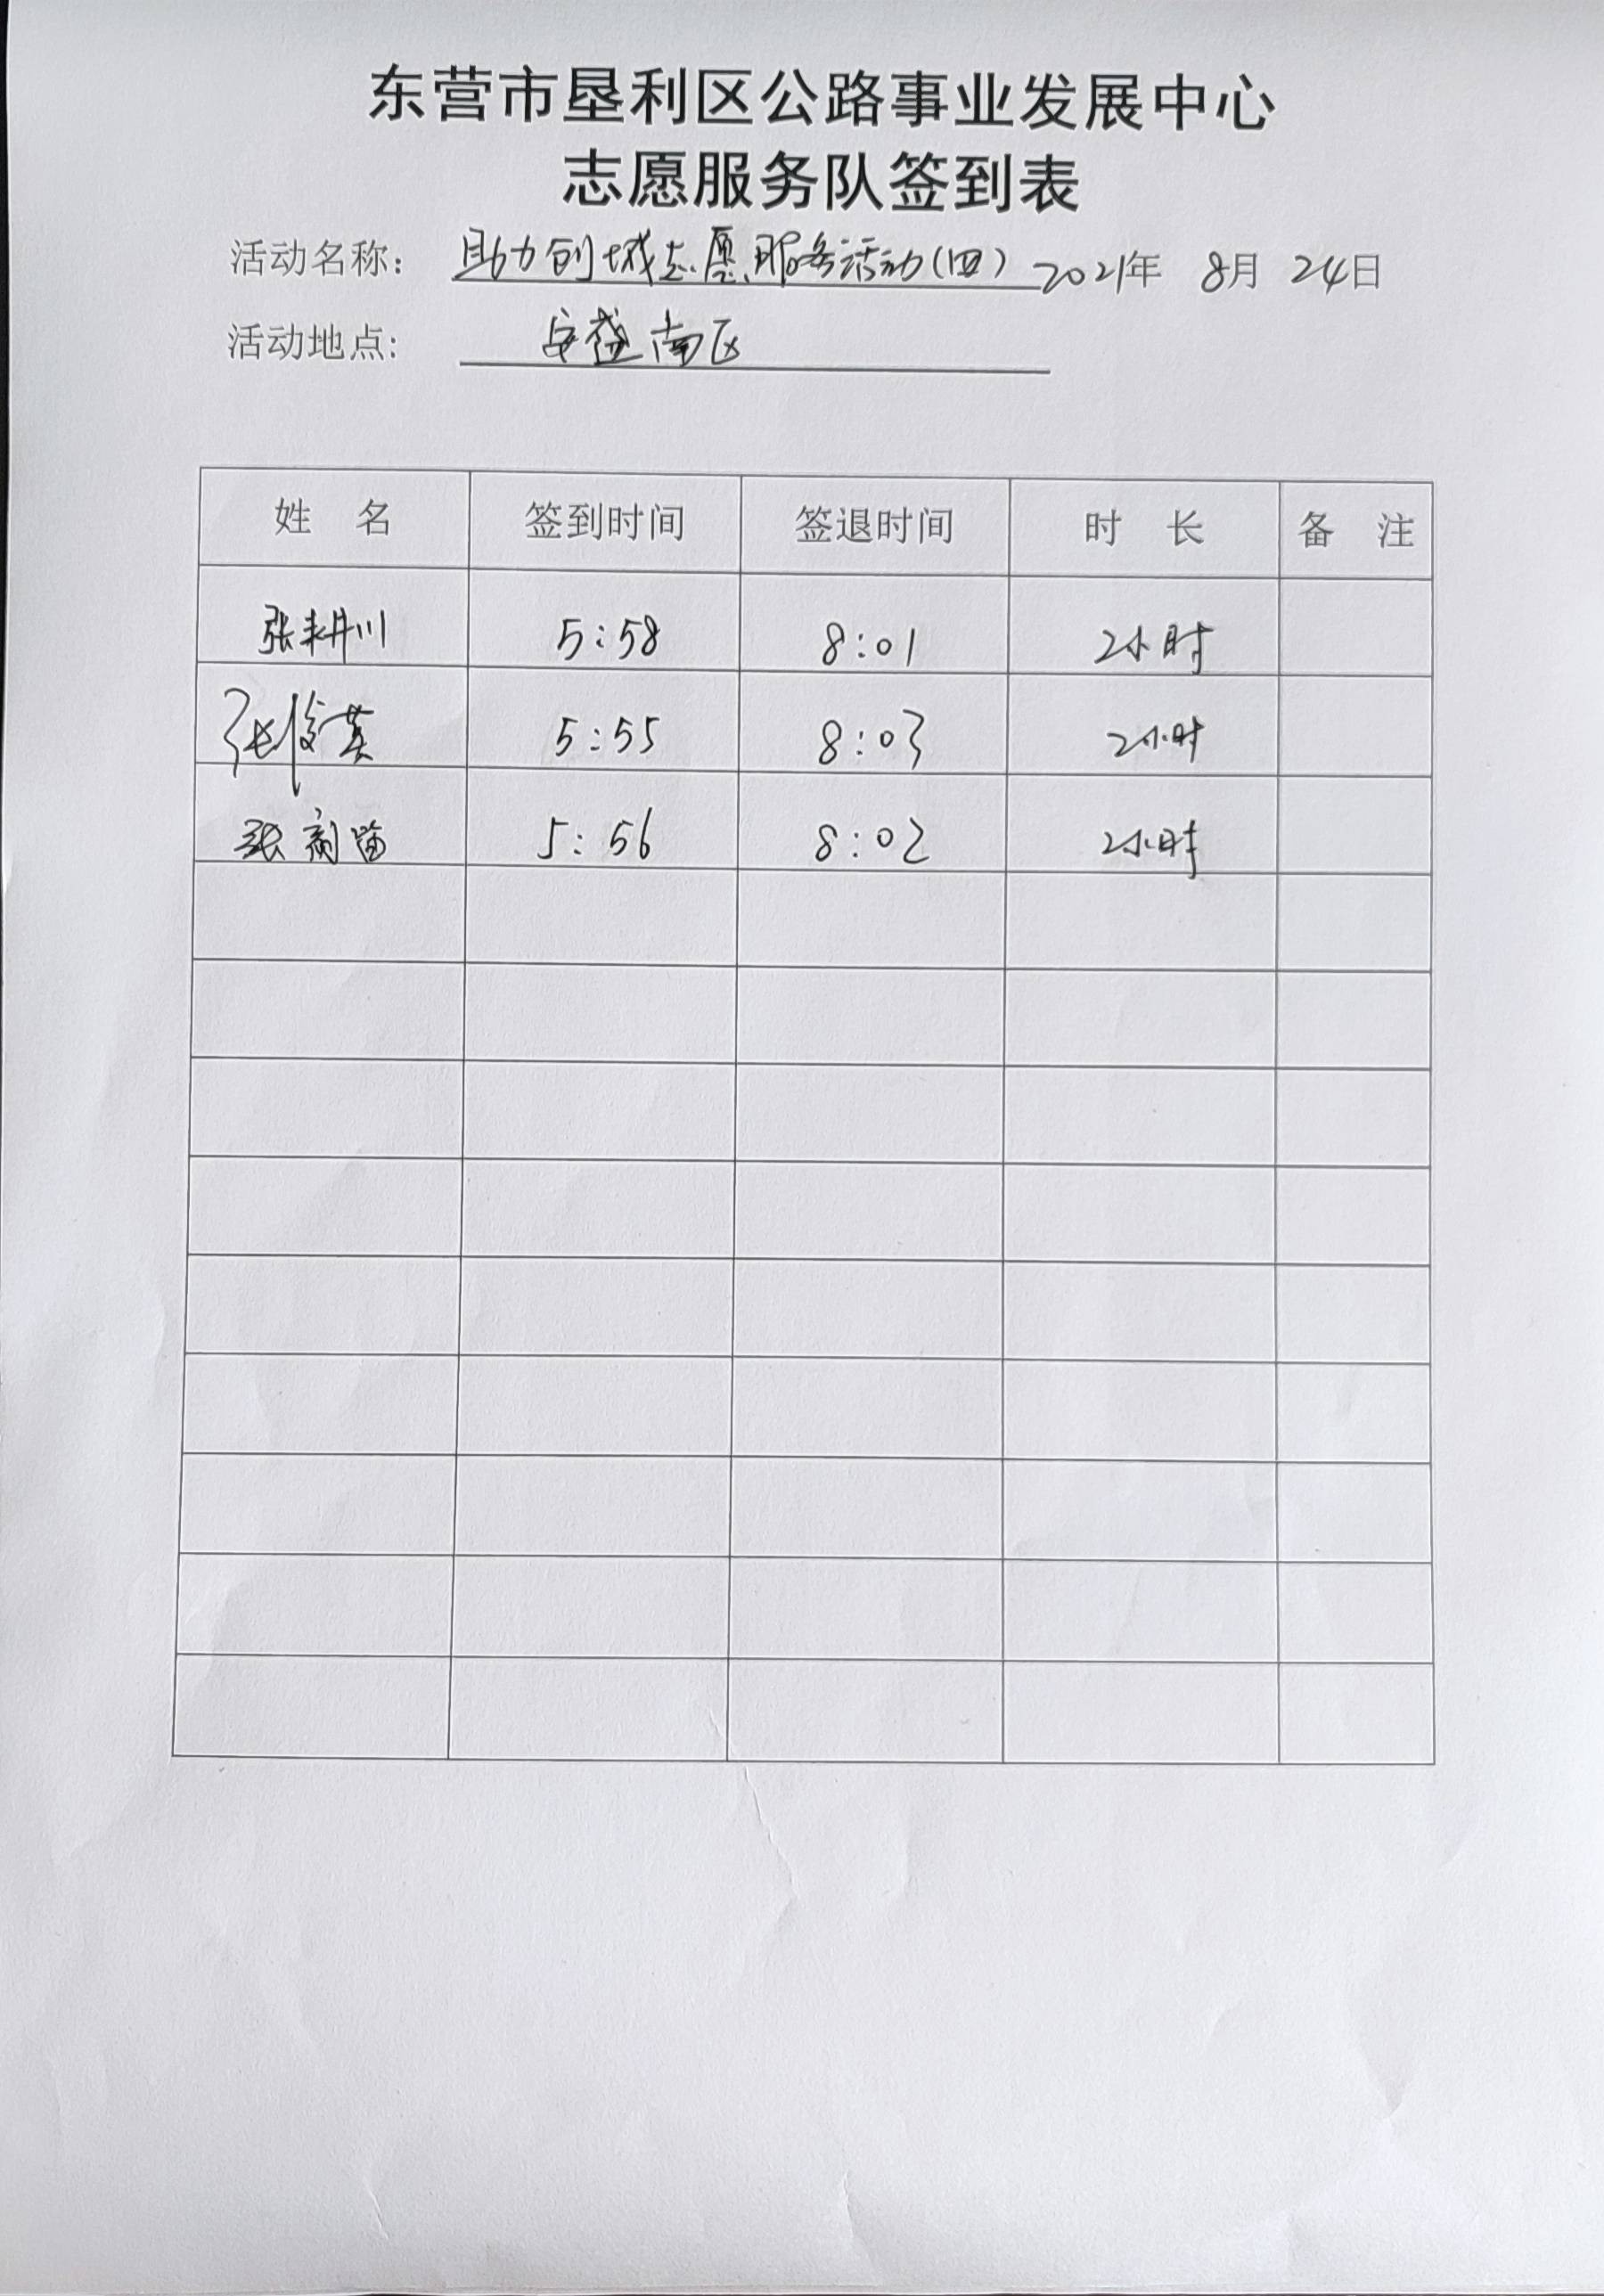 东营市垦利区公路事业发展中心
志愿服务队签到表
活动名称： 助力创城志愿服务活动(四) 2021年 8月 24日
活动地点： 安盛南区
姓 名 签到时间 签退时间 时 长 备 注
张耕川 5:58 8:01 2小时
张俊英 5:55 8:03 2小时
张 5:56 8:02 2小时